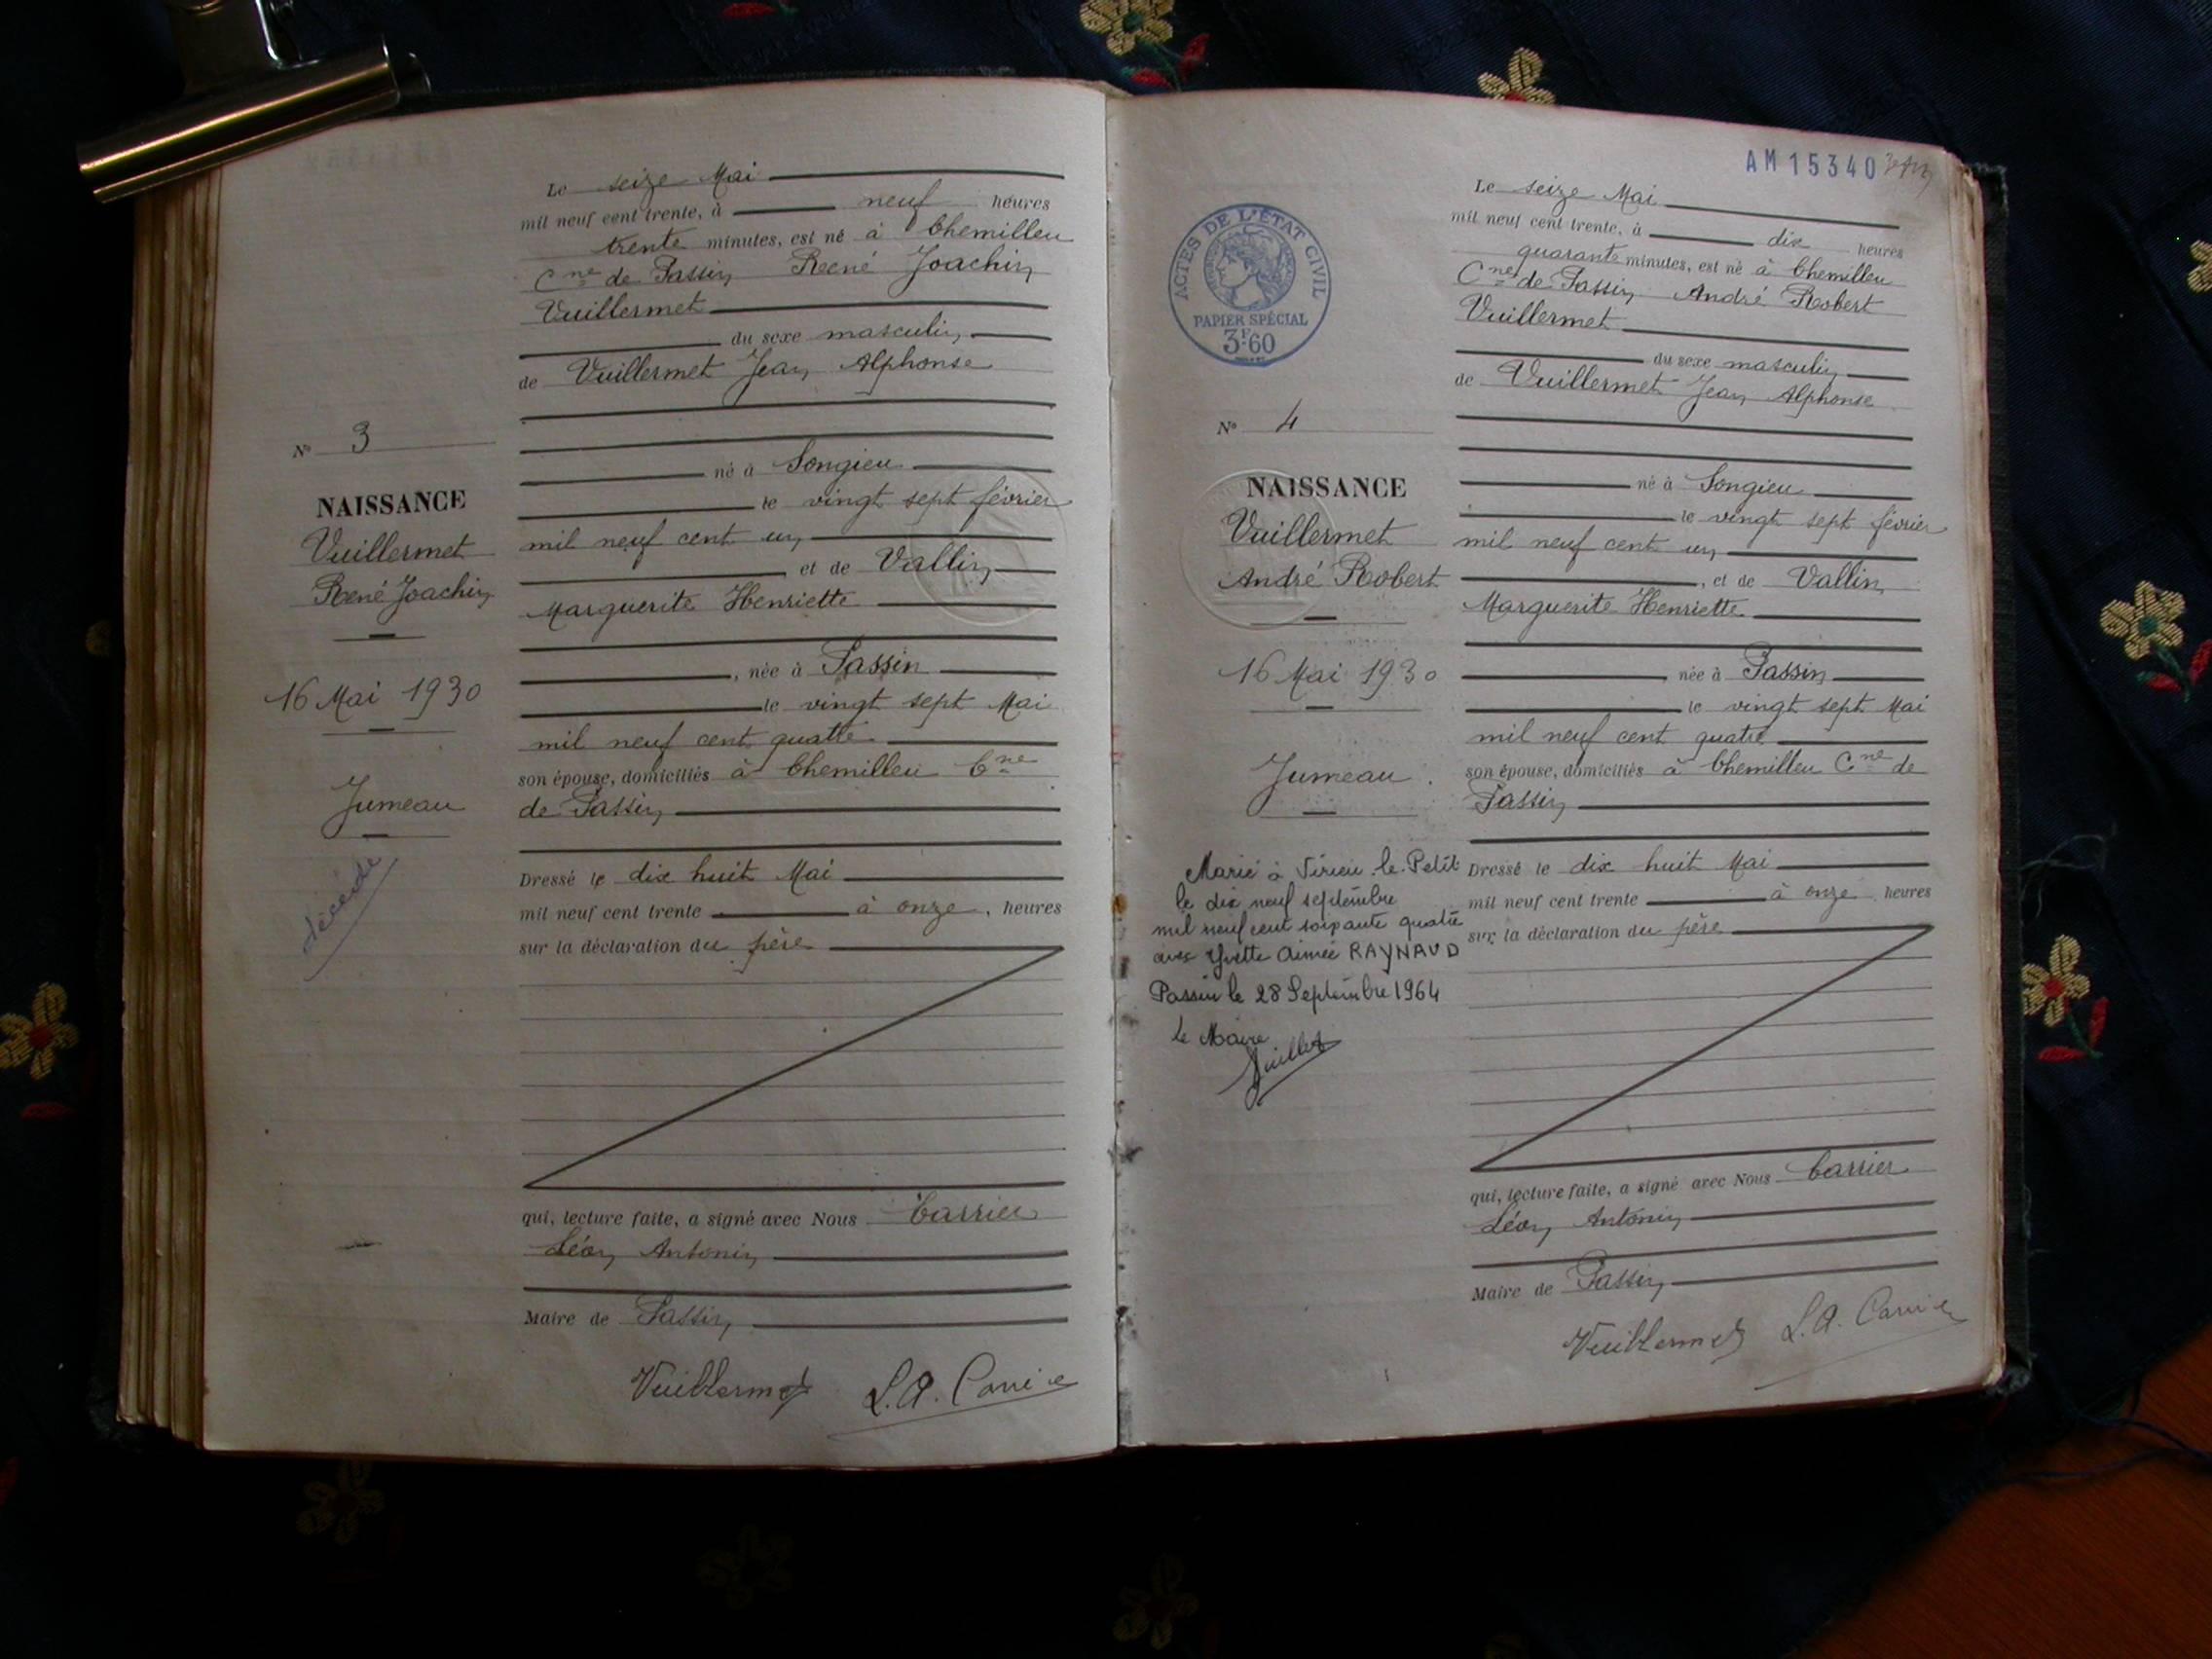 Le seize Mai
mil neuf cent trente, à neuf heures
trente minutes, est né à Chemilleu
Cne de Passin René Joachin
Vuillermet
du sexe masculin
de Vuillermet Jean Alphonse
né à Songieu
le vingt sept février
mil neuf cent un
et de Vallin
Marguerite Henriette
, née à Passin
le vingt sept Mai
mil neuf cent quatre
son épouse, domiciliés à Chemilleu Cne
de Passin
Dressé le dix huit Mai
mil neuf cent trente à onze, heures
sur la déclaration du père
qui, lecture faite, a signé avec Nous Carrier
Léon Antonin
Maire de Passin
Vuillermet L.A. Carrier
No 3
NAISSANCE
Vuillermet
René Joachin
16 Mai 1930
Jumeau
décédé
AM 15340
ACTES DE L'ÉTAT CIVIL
PAPIER SPÉCIAL
3F60
Le seize Mai
mil neuf cent trente, à dix heures
quarante minutes, est né à Chemilleu
Cne de Passin André Robert
Vuillermet
du sexe masculin
de Vuillermet Jean Alphonse
né à Songieu
le vingt sept février
mil neuf cent un
, et de Vallin
Marguerite Henriette
née à Passin
le vingt sept Mai
mil neuf cent quatre
son épouse, domiciliés à Chemilleu Cne de
Passin
Dressé le dix huit Mai
mil neuf cent trente à onze heures
sur la déclaration du père
qui, lecture faite, a signé avec Nous Carrier
Léon Antonin
Maire de Passin
Vuillermet L.A. Carrier
No 4
NAISSANCE
Vuillermet
André Robert
16 Mai 1930
Jumeau
Marié à Virieu-le-Petit
le dix neuf septembre
mil neuf cent soixante quatre
avec Yvette Aimée RAYNAUD
Passin le 28 Septembre 1964
le Maire